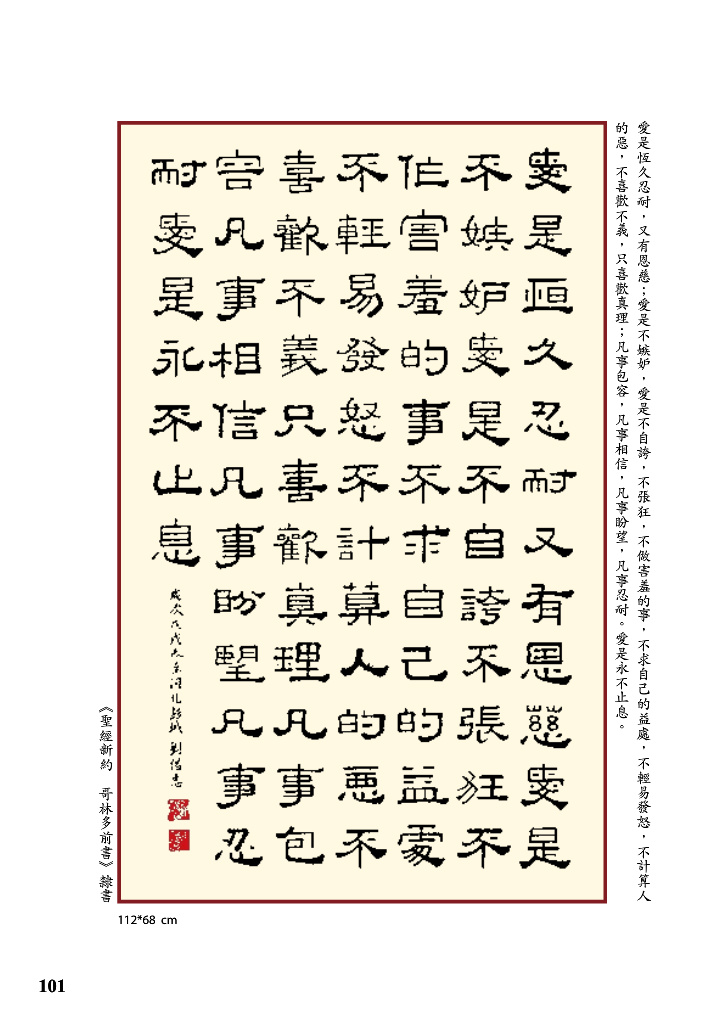 愛是恆久忍耐，又有恩慈；愛是不嫉妒，愛是不自誇，不張狂，不做害羞的事，不求自己的益處，不輕易發怒，不計算人
的惡，不喜歡不義，只喜歡真理；凡事包容，凡事相信，凡事盼望，凡事忍耐。愛是永不止息。
愛是恒久忍耐又有恩慈愛是
不嫉妒愛是不自誇不張狂不
作害羞的事不求自己的益處
不輕易發怒不計算人的惡不
喜歡不義只喜歡真理凡事包
容凡事相信凡事盼望凡事忍
耐愛是永不止息
歲次戊戌 劉志
《聖經新約 哥林多前書》隸書
112*68 cm
101